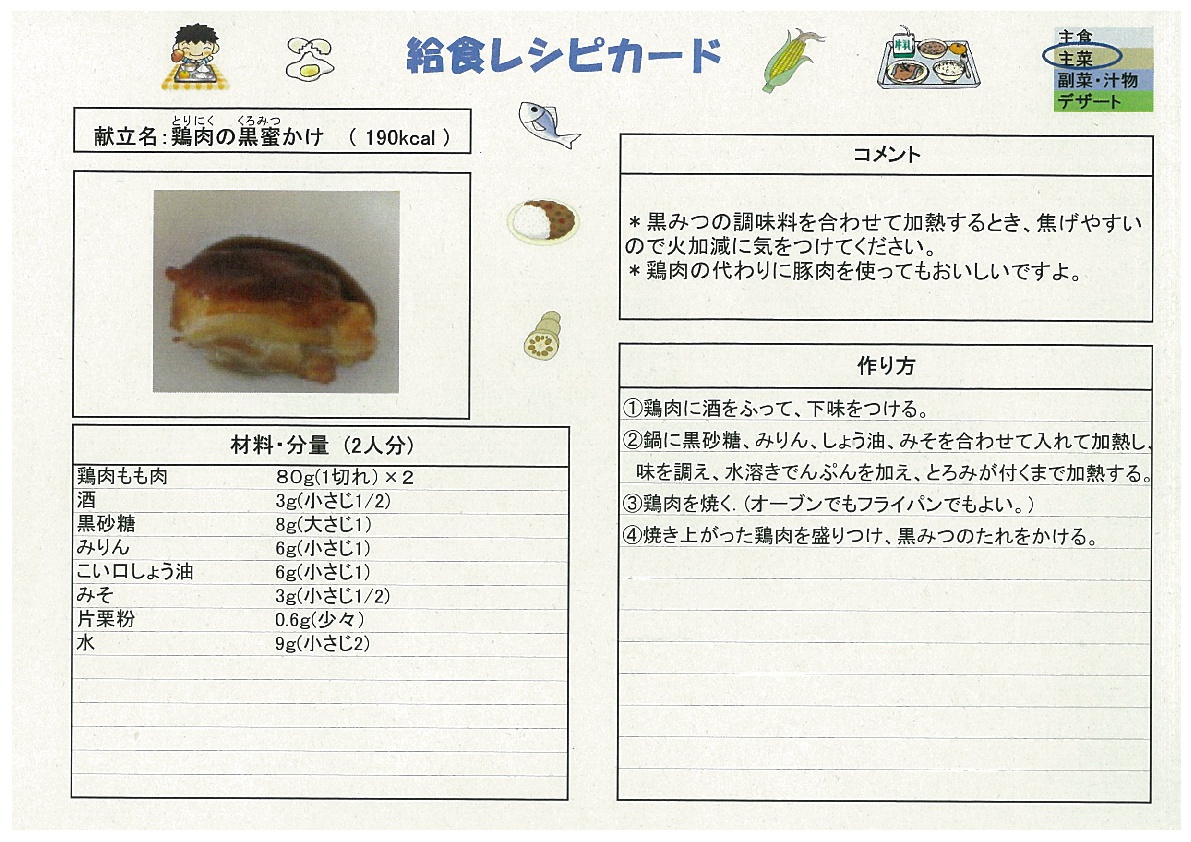 給食レシピカード
主食
主菜
副菜・汁物
デザート
とりにく くろみつ
献立名:鶏肉の黒蜜かけ ( 190kcal )
コメント
＊黒みつの調味料を合わせて加熱するとき、焦げやすい
ので火加減に気をつけてください。
＊鶏肉の代わりに豚肉を使ってもおいしいですよ。
材料・分量 (2人分)
鶏肉もも肉 80g(1切れ)×2
酒 3g(小さじ1/2)
黒砂糖 8g(大さじ1)
みりん 6g(小さじ1)
こい口しょう油 6g(小さじ1)
みそ 3g(小さじ1/2)
片栗粉 0.6g(少々)
水 9g(小さじ2)
作り方
①鶏肉に酒をふって、下味をつける。
②鍋に黒砂糖、みりん、しょう油、みそを合わせて入れて加熱し、
味を調え、水溶きでんぷんを加え、とろみが付くまで加熱する。
③鶏肉を焼く.(オーブンでもフライパンでもよい。)
④焼き上がった鶏肉を盛りつけ、黒みつのたれをかける。